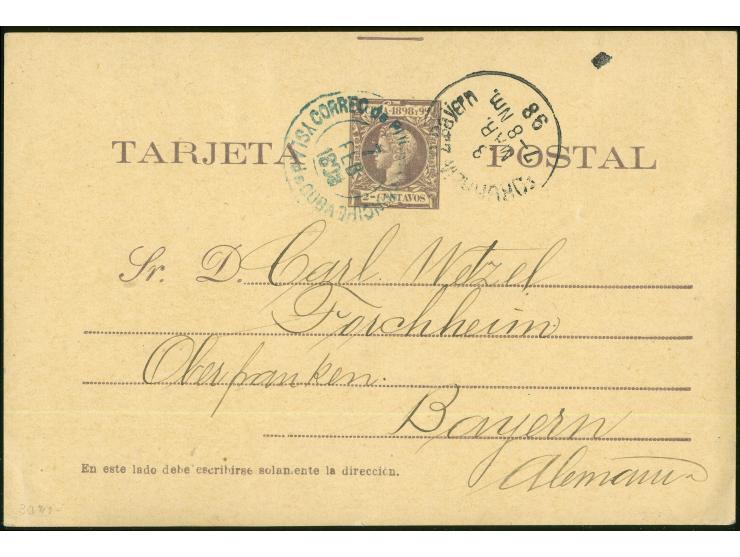 TARJETA POSTAL
1898 y 99
2 CENTAVOS
CORREO de
CUBA
7
FEB
1898
Bayern
3
MAR.
7-8 NM.
98
Sr. D. Carl. Wetzel
Forchheim
Oberfranken.
Bayern
Alemania
En este lado debe escribirse solamente la dirección.